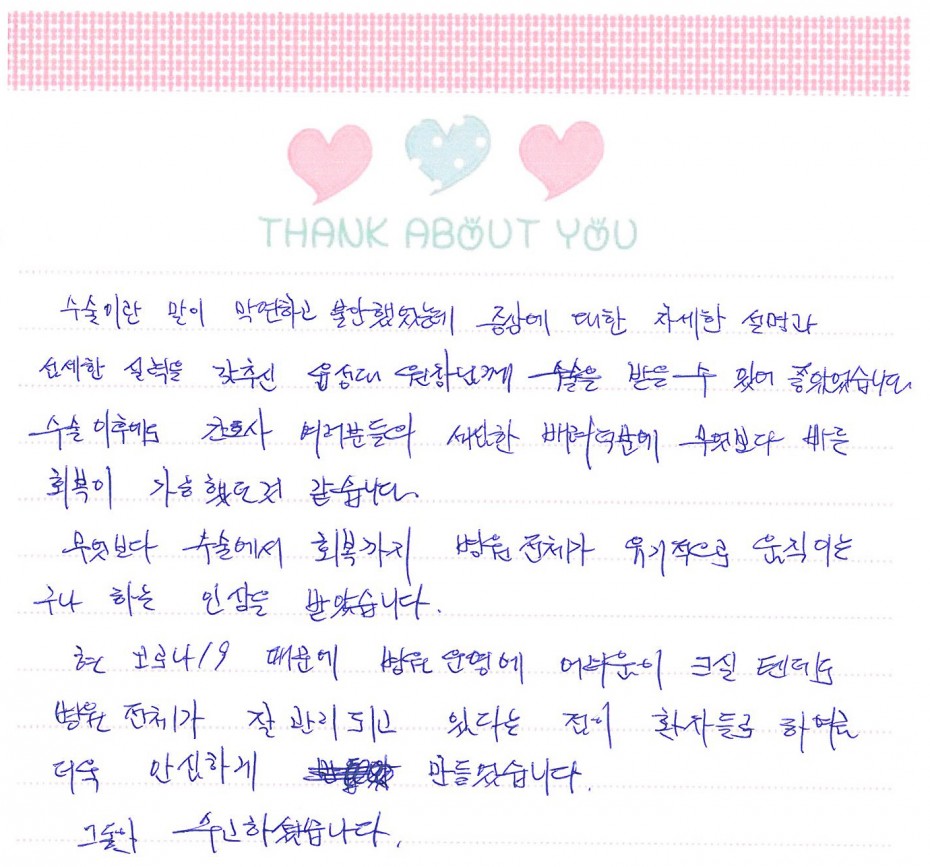 THANK ABOUT YOU
수술이란 말이 막연하고 불안했었는데 증상에 대한 자세한 설명과
섬세한 실력을 갖추신 윤성대 원장님께 수술을 받을 수 있어 좋았었습니다.
수술 이후에도 간호사 여러분들의 세심한 배려덕분에 무엇보다 빠른
회복이 가능했던것 같습니다.
무엇보다 수술에서 회복까지 병원 전체가 유기적으로 움직이는
구나 하는 인상을 받았습니다.
현 코로나19 때문에 병원 운영에 어려움이 크실 텐데도
병원 전체가 잘 관리되고 있다는 점이 환자들로 하여금
더욱 안심하게 만들었습니다.
그동안 수고하셨습니다.